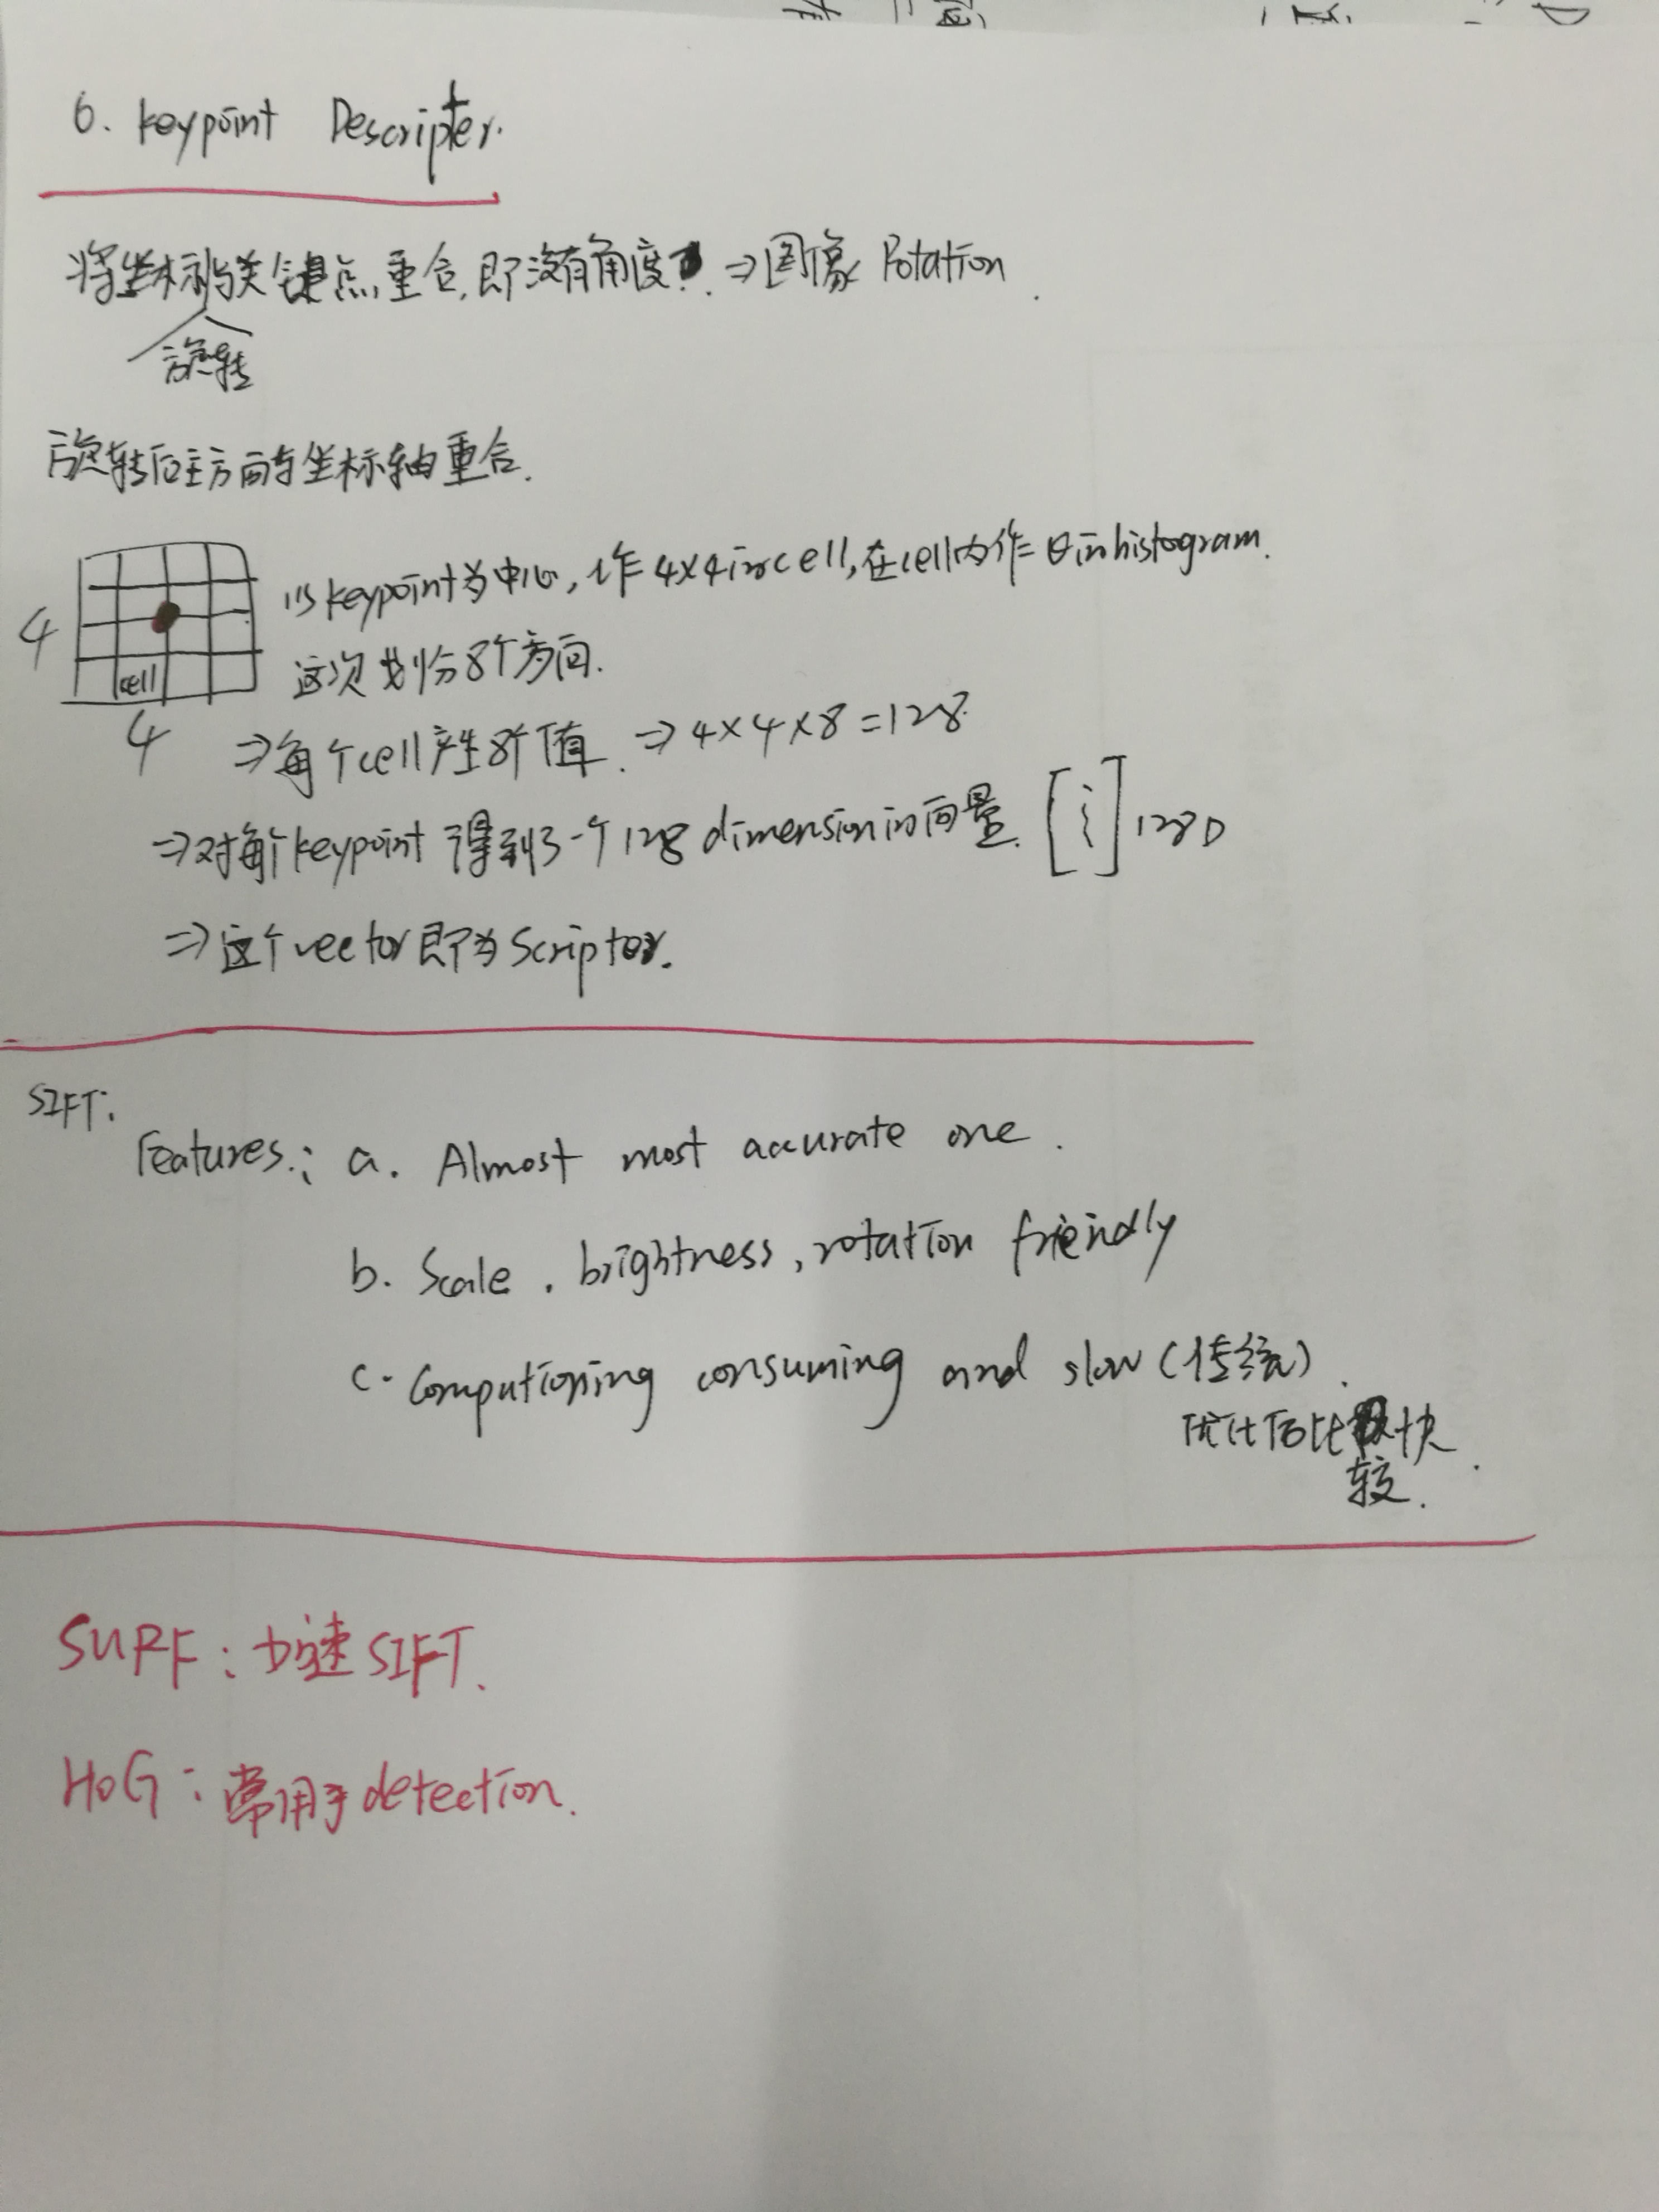 6. Keypoint Descripter.
将坐标与关键点重合,即没有角度. ⇒图像 Rotation.
旋转
旋转后主方向与坐标轴重合.
以keypoint为中心,作4×4的cell,在cell内作θ的histogram.
4
这次划份8个方向.
cell
4
⇒每个cell产生8个值. ⇒4×4×8=128.
⇒对每个keypoint 得到了一个128 dimension的向量. [⋮]128D
⇒这个vector即为Scriptor.
SIFT:
Features: a. Almost most accurate one.
b. Scale, brightness, rotation friendly
c. Computioning consuming and slow (传统).
优化后比快.
较.
SURF: 加速SIFT.
HoG: 常用于detection.